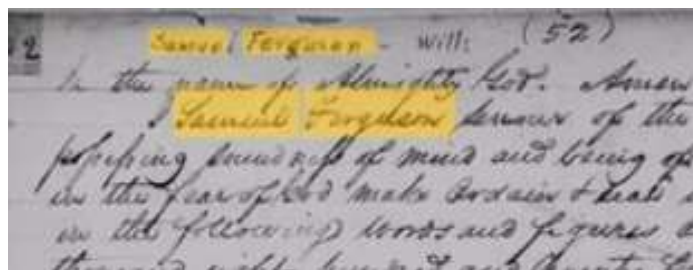 2 Samuel Ferguson - Will: (52)
In the name of Almighty God. Amen
I Samuel Ferguson senior of the
possessing soundness of mind and being of
in the fear of God make Ordain &
in the following words and figures
thousand eight hundred and